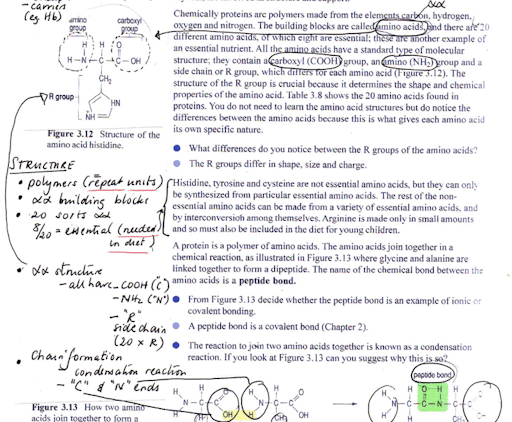 -carrier
(eg. Hb)
amino group
carboxyl group
R group
Figure 3.12 Structure of the
amino acid histidine.
STRUCTURE
• polymers (repeat units)
• αα building blocks
• 20 sorts αα
8/20 = essential (needed
in diet)
• αα structure
- all have - COOH ("C")
- NH2 ("N")
- "R"
side chain
(20 x R)
• Chain formation
- condensation reaction
- "C" & "N" ends
Figure 3.13 How two amino
acids join together to form a
αα
Chemically proteins are polymers made from the elements carbon, hydrogen,
oxygen and nitrogen. The building blocks are called amino acids, and there are 20
different amino acids, of which eight are essential; these are another example of
an essential nutrient. All the amino acids have a standard type of molecular
structure; they contain a carboxyl (COOH) group, an amino (NH2) group and a
side chain or R group, which differs for each amino acid (Figure 3.12). The
structure of the R group is crucial because it determines the shape and chemical
properties of the amino acid. Table 3.8 shows the 20 amino acids found in
proteins. You do not need to learn the amino acid structures but do notice the
differences between the amino acids because this is what gives each amino acid
its own specific nature.
● What differences do you notice between the R groups of the amino acids?
● The R groups differ in shape, size and charge.
Histidine, tyrosine and cysteine are not essential amino acids, but they can only
be synthesized from particular essential amino acids. The rest of the non-
essential amino acids can be made from a variety of essential amino acids, and
by interconversion among themselves. Arginine is made only in small amounts
and so must also be included in the diet for young children.
A protein is a polymer of amino acids. The amino acids join together in a
chemical reaction, as illustrated in Figure 3.13 where glycine and alanine are
linked together to form a dipeptide. The name of the chemical bond between the
amino acids is a peptide bond.
● From Figure 3.13 decide whether the peptide bond is an example of ionic or
covalent bonding.
● A peptide bond is a covalent bond (Chapter 2).
● The reaction to join two amino acids together is known as a condensation
reaction. If you look at Figure 3.13 can you suggest why this is so?
peptide bond